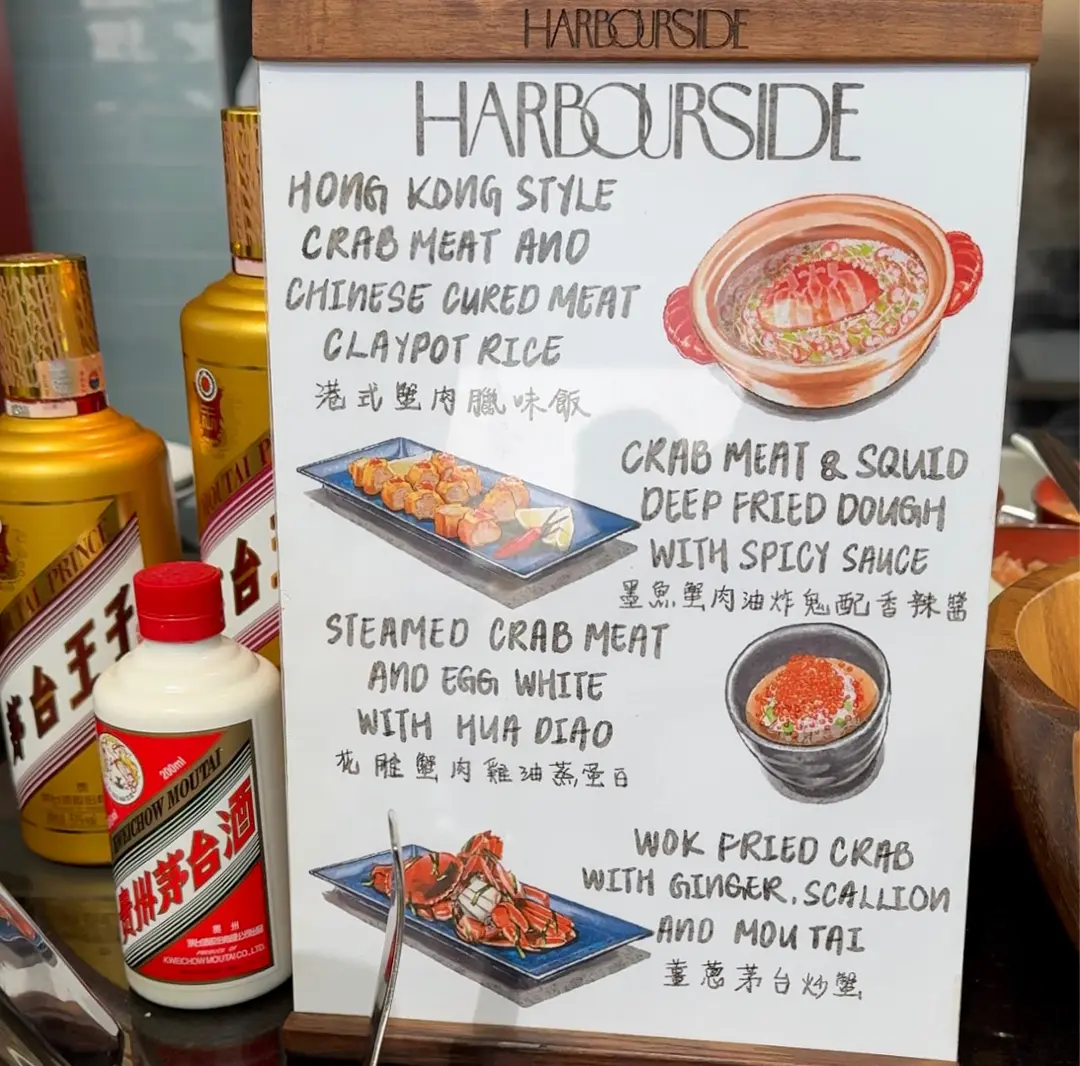 HARBOURSIDE
HARBOURSIDE
HONG KONG STYLE
CRAB MEAT AND
CHINESE CURED MEAT
CLAYPOT RICE
港式蟹肉臘味飯
CRAB MEAT & SQUID
DEEP FRIED DOUGH
WITH SPICY SAUCE
墨魚蟹肉油炸鬼配香辣醬
STEAMED CRAB MEAT
AND EGG WHITE
WITH HUA DIAO
花雕蟹肉雞油蒸蛋白
WOK FRIED CRAB
WITH GINGER, SCALLION
AND MOUTAI
薑蔥茅台炒蟹
MOUTAI P
台
PRINCE
茅台王子
200ml
KWEICHOW MOUTAI
貴州茅台酒
貴州
PRODUCE OF
KWEICHOW MOUTAI CO., LTD.